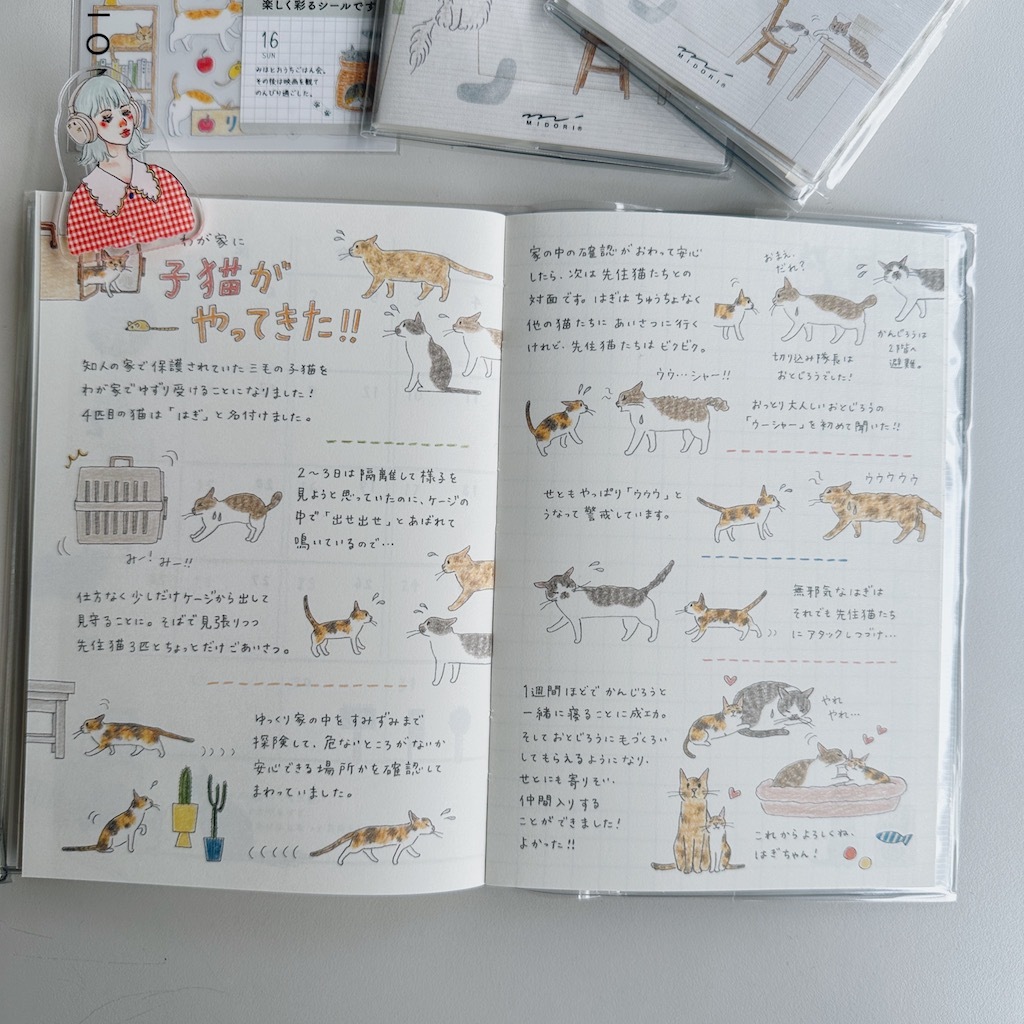 楽しく彩るシールです
16
SUN
みほとおうちごはん会。
その後は映画を観て
のんびり過ごした。
MIDORI
MIDORI
わが家に
子猫が
やってきた!!
知人の家で保護されていた三毛の子猫を
わが家でゆずり受けることになりました!
4匹目の猫は「はぎ」と名付けました。
2〜3日は隔離して様子を
見ようと思っていたのに、ケージの
中で「出せ出せ」とあばれて
鳴いているので…
みー!みー!!
仕方なく少しだけケージから出して
見守ることに。そばで見張りつつ
先住猫3匹とちょっとだけごあいさつ。
ゆっくり家の中をすみずみまで
探険して、危ないところがないか
安心できる場所かを確認して
まわっていました。
家の中の確認がおわって安心
したら、次は先住猫たちとの
対面です。はぎはちゅうちょなく
他の猫たちにあいさつに行く
けれど、先住猫たちはビクビク。
おまえ、
だれ?
切り込み隊長は
おとじろうでした!
かんじろうは
2階へ
避難。
ウウ…シャー!!
おっとり大人しいおとじろうの
「ウーシャー」を初めて聞いた!!
せともやっぱり「ウウウ」と
うなって警戒しています。
ウウウウウ
無邪気なはぎは
それでも先住猫たち
にアタックしつづけ…
1週間ほどでかんじろうと
一緒に寝ることに成功。
そしておとじろうに毛づくろい
してもらえるようになり、
せとにも寄りそい、
仲間入りする
ことができました!
よかった!!
やれ
やれ…
これからよろしくね、
はぎちゃん!